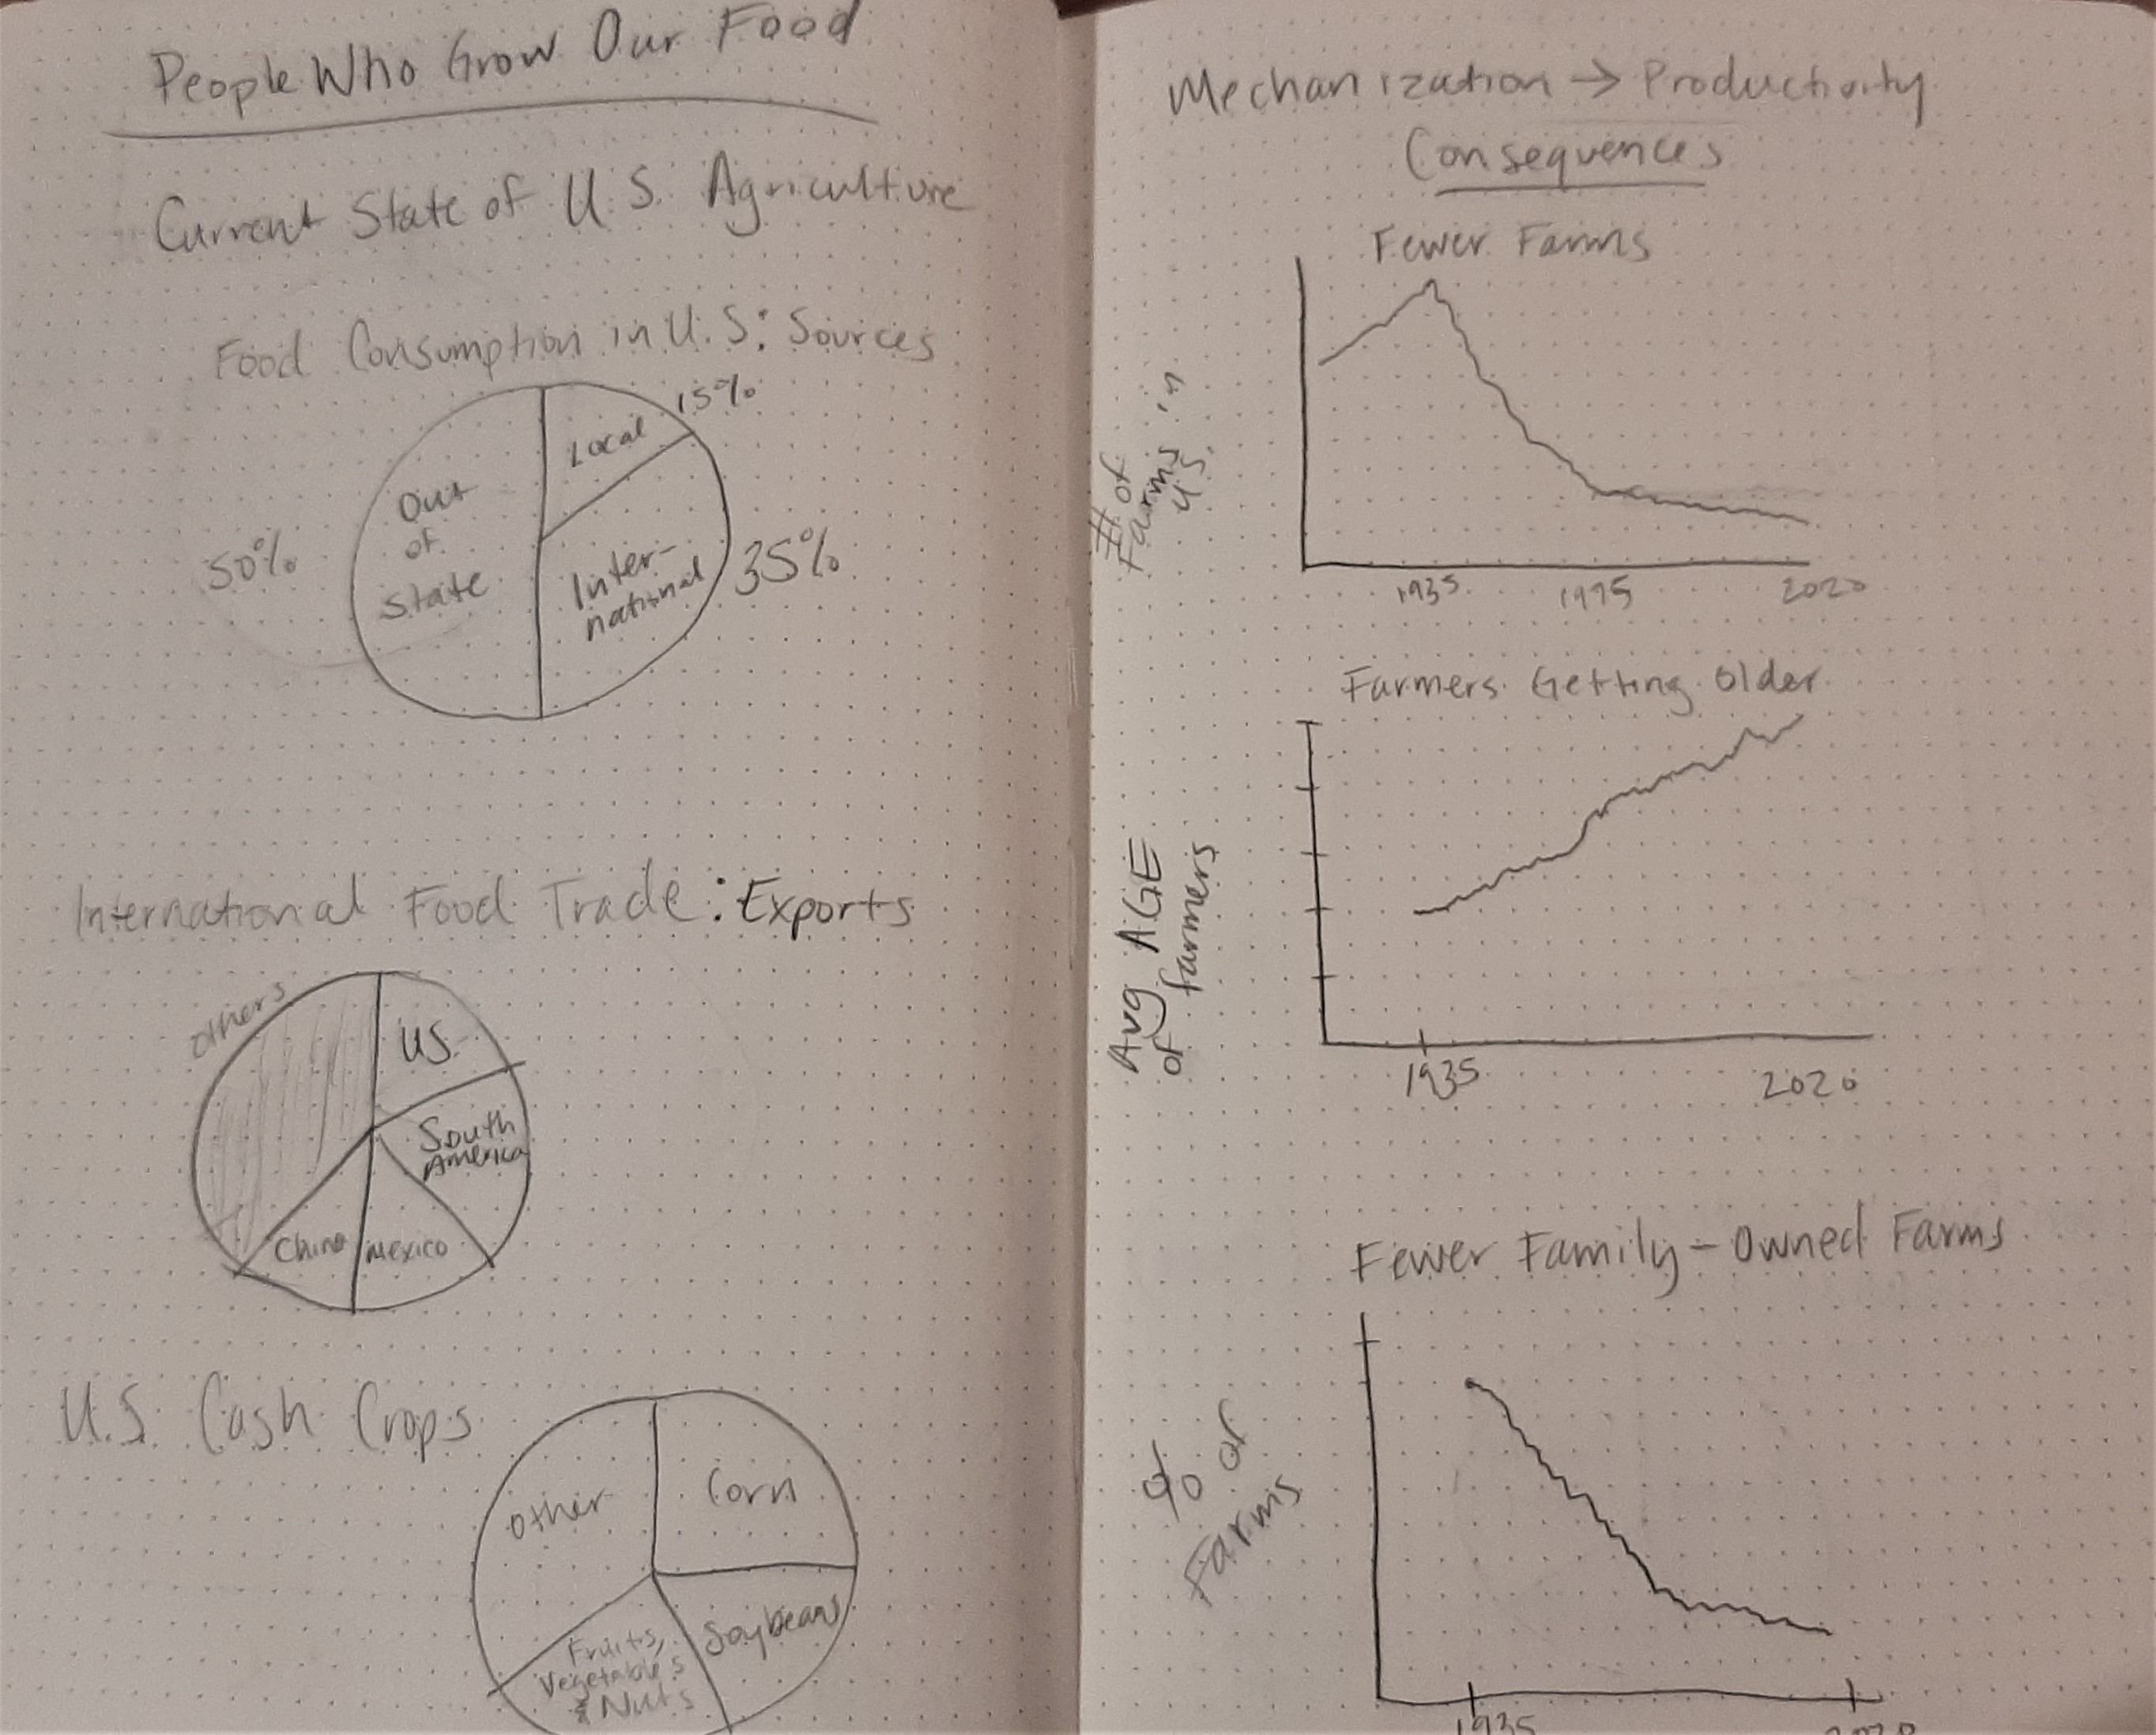 People Who Grow Our Food
Current State of U.S. Agriculture
Food Consumption in U.S: Sources
15%
Local
Out
of
State
50%
Inter-
national
35%
International Food Trade: Exports
Others
US
South
America
China
Mexico
U.S. Cash Crops
Other
Corn
Soybeans
Fruits,
Vegetables
& Nuts
Mechanization → Productivity
Consequences
Fewer Farms
# of
Farms in
U.S.
1935
1975
2020
Farmers Getting Older
Avg AGE
of farmers
1935
2020
Fewer Family-Owned Farms
% of
Farms
1935
2020